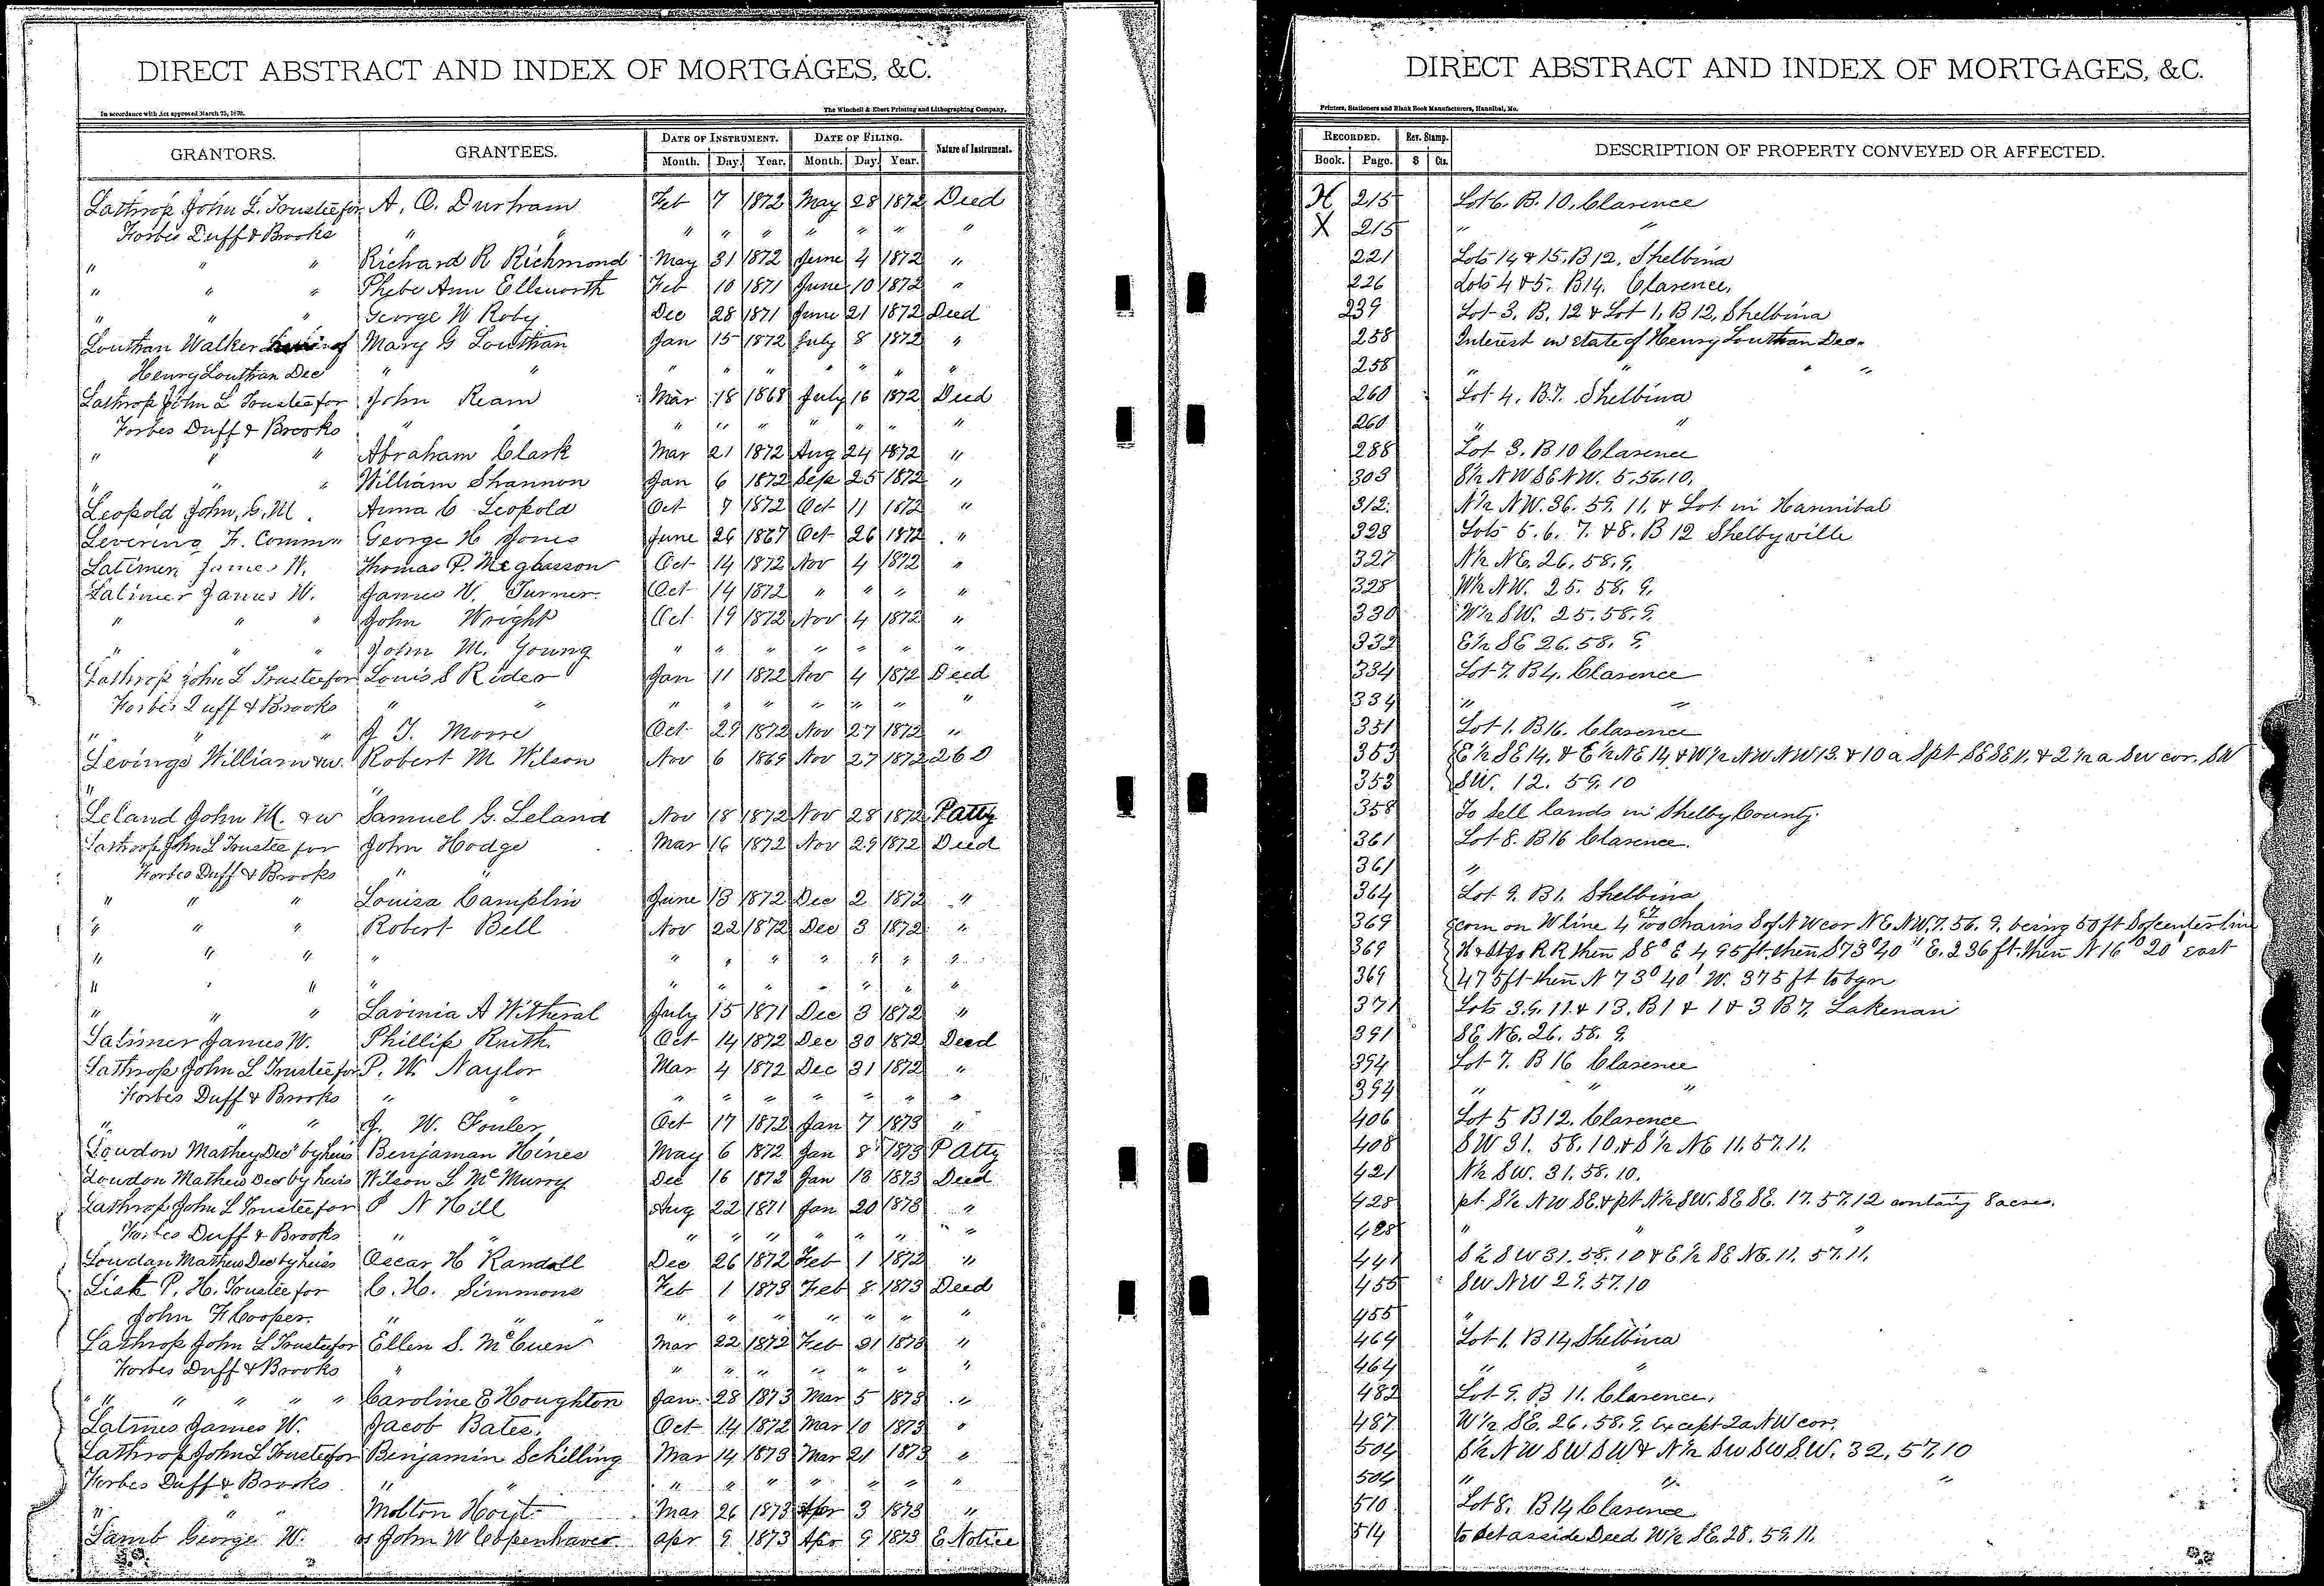 DIRECT ABSTRACT AND INDEX OF MORTGAGES, &C.
In accordance with Act approved March 25, 1870.
The Winchell & Ebert Printing and Lithographing Company.
GRANTORS. GRANTEES. DATE OF INSTRUMENT. DATE OF FILING. Nature of Instrument.
Month. Day. Year. Month. Day. Year.
Lathrop John L. Trustee for A. O. Durham Feb 7 1872 May 28 1872 Deed
Forbes Duff & Brooks " " " " " " " " "
" " " Richard R Richmond May 31 1872 June 4 1872 "
" " " Phebe Ann Ellsworth Feb 10 1871 June 10 1872 "
" " " George W Roby Dec 28 1871 June 21 1872 Deed
Louthan Walker Mary G Louthan Jan 15 1872 July 8 1872 "
Henry Louthan Dec " " " " " " " " "
Lathrop John L Trustee for John Ream Mar 18 1868 July 16 1872 Deed
Forbes Duff & Brooks " " " " " " " " "
" " " Abraham Clark Mar 21 1872 Aug 24 1872 "
" " " William Shannon Jan 6 1872 Sep 25 1872 "
Leopold John, G. M. Anna C Leopold Oct 7 1872 Oct 11 1872 "
Levering F. Comm " George H Jones June 26 1867 Oct 26 1872 "
Latimer James W. Thomas P. McGlasson Oct 14 1872 Nov 4 1872 "
Latimer James W. James W. Turner Oct 14 1872 " " " "
" " " John Wright Oct 19 1872 Nov 4 1872 "
" " " John M. Young " " " " " " "
Lathrop John L Trustee for Louis S Rider Jan 11 1872 Nov 4 1872 Deed
Forbes Duff & Brooks " " " " " " " " "
" " " J. T. Moore Oct 29 1872 Nov 27 1872 "
Levings William & w. Robert M Wilson Nov 6 1869 Nov 27 1872 2 6 D
" "
Leland John M. & w Samuel G. Leland Nov 18 1872 Nov 28 1872 P atty
Lathrop John L Trustee for John Hodge Mar 16 1872 Nov 29 1872 Deed
Forbes Duff & Brooks "
" " " Louisa Camplin June 13 1872 Dec 2 1872 "
" " " Robert Bell Nov 22 1872 Dec 3 1872 "
" " " " " " " " " " "
" " " " " " " " " " "
" " " Lavinia A Witheral July 15 1871 Dec 3 1872 "
Latimer James W. Phillip Knith Oct 14 1872 Dec 30 1872 Deed
Lathrop John L Trustee for P. W. Naylor Mar 4 1872 Dec 31 1872 "
Forbes Duff & Brooks " " " " " " " " "
" " " J. W. Fouler Oct 17 1872 Jan 7 1873 "
Lowdon Mathey Dec'd by heirs Benjaman Hines May 6 1872 Jan 8 1873 P Atty
Loudon Mathew Dec by heirs Wilson L McMurry Dec 16 1872 Jan 13 1873 Deed
Lathrop John L Trustee for P N Hill Aug 22 1871 Jan 20 1873 "
Forbes Duff & Brooks " " " " " " " "
Lowdan Mathew Dec by heirs Oscar H Randall Dec 26 1872 Feb 1 1872 "
Lisk P. H. Trustee for C. H. Simmons Feb 1 1873 Feb 8 1873 Deed
John F Cooper. " " " " " " " " " "
Lathrop John L Trustee for Ellen S. McCuen Mar 22 1872 Feb 21 1873 "
Forbes Duff & Brooks " " " " " " " "
" " " " " Caroline E Houghton Jan 28 1873 Mar 5 1873 "
Latimes James W. Jacob Bates Oct 14 1872 Mar 10 1873 "
Lathrop John L Trustee for Benjamin Schilling Mar 14 1873 Mar 21 1873 "
Forbes Duff & Brooks " " " " " " " " "
" " Molton Hoyt Mar 26 1873 Apr 3 1873 "
Lamb George W. John W Copenhaver Apr 9 1873 Apr 9 1873 E Notice
DIRECT ABSTRACT AND INDEX OF MORTGAGES, &C.
Printers, Stationers and Blank Book Manufacturers, Hannibal, Mo.
RECORDED. Rev. Stamp. DESCRIPTION OF PROPERTY CONVEYED OR AFFECTED.
Book. Page. $ Cts.
X 215 Lot 6. B. 10. Clarence
X 215 " "
221 Lots 14 & 15. B 12. Shelbina
226 Lots 4 & 5. B 14. Clarence.
239 Lot 3. B. 12 & Lot 1, B 12, Shelbina
258 Interest in state of Henry Louthan Dec.
258 " " " "
260 Lot 4. B. 7. Shelbina
260 " "
288 Lot 3. B 10 Clarence
303 S½ NW SE NW. 5. 56. 10.
312. N½ NW. 36. 59. 11. & Lot in Hannibal
323 Lots 5. 6. 7. & 8. B 12 Shelbyville
327 N½ NE. 26. 58. 9.
328 W½ NW. 25. 58. 9.
330 W½ SW. 25. 58. 9.
332 E½ SE 26. 58. 9.
334 Lot 7. B 4. Clarence
334 " "
351 Lot 1. B 16. Clarence
353 E½ SE 14. & E½ NE 14 & W½ NW NW 13. & 10 a S pt SE SE 11. & 2½ a SW cor. SW
353 SW. 12. 59. 10
358 To Sell lands in Shelby County.
361 Lot 8. B 16 Clarence.
361 "
364 Lot 9. B 1. Shelbina
369 com on W line 4 chains S of NW cor NE NW. 7. 56. 9. being 50 ft S of center line
369 H & St Jo R R then S 8° E 495 ft. then S 73° 40" E. 236 ft. then N 16° 20' east
369 475 ft then N 73° 40' W. 375 ft to bgn
371 Lots 3. 9. 11. & 13. B 1 & 1 & 3 B 7. Lakenan
391 SE NE. 26. 58. 9.
394 Lot 7. B 16 Clarence
394 " " "
406 Lot 5 B 12. Clarence
408 SW 31. 58. 10. & S½ NE 11. 57. 11.
421 N½ SW. 31. 58. 10.
428 pt. S½ NW SE. & pt N½ SW. SE SE. 17. 57. 12 containg 8 acres.
428 " " "
441 S½ SW 31. 58. 10 & E½ SE NE. 11. 57. 11.
455 SW NW 29. 57. 10
455 "
464 Lot 1. B 14 Shelbina
464 " "
482 Lot 9. B 11. Clarence.
487 W½ SE. 26. 58. 9. Except 2a NW cor.
504 S½ NW SW SW & N½ SW SW S.W. 32. 57. 10
504 " " "
510 Lot 8. B 14 Clarence
514 to Set asside Deed W½ SE. 28. 59. 11.